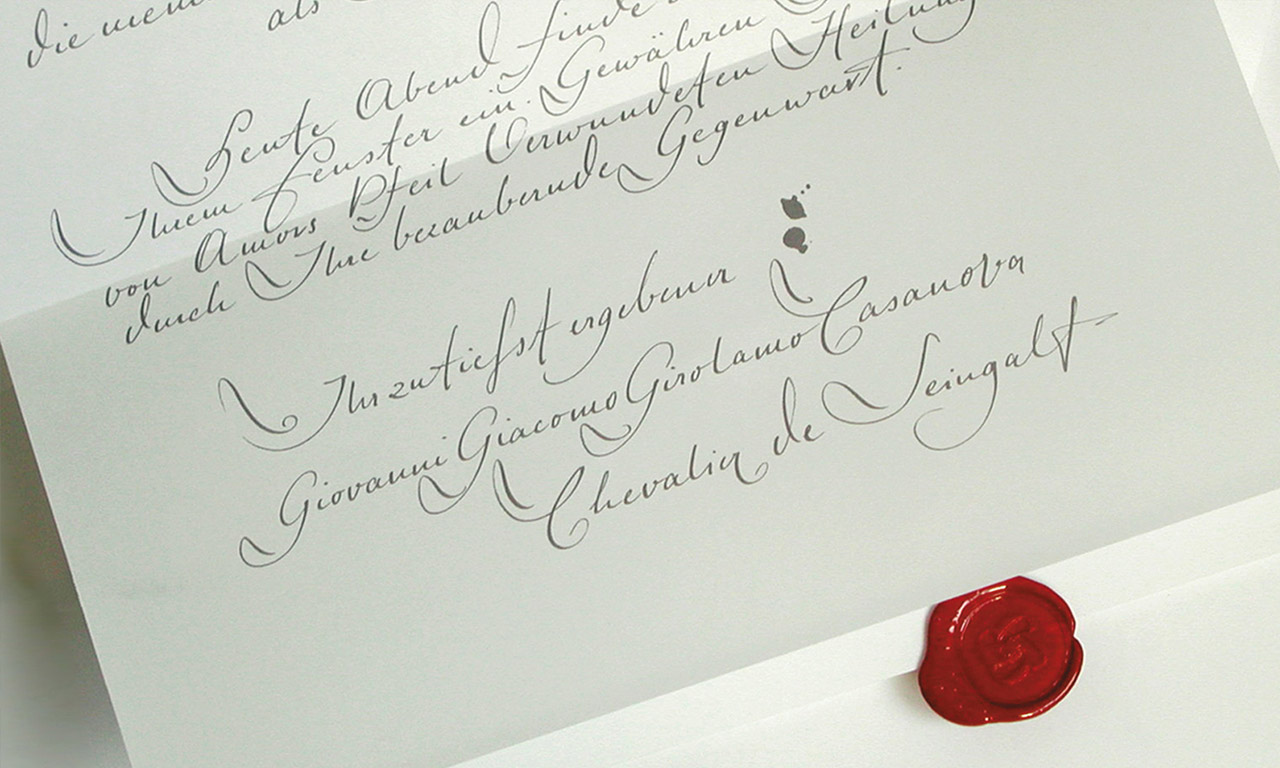 die meine
als
Heute Abend finde
Ihrem Fenster ein. Gewähren
von Amors Pfeil Verwundeten Heilung
durch Ihre bezaubernde Gegenwart.
Ihr zutiefst ergebener
Giovanni Giacomo Girolamo Casanova
Chevalier de Seingalt